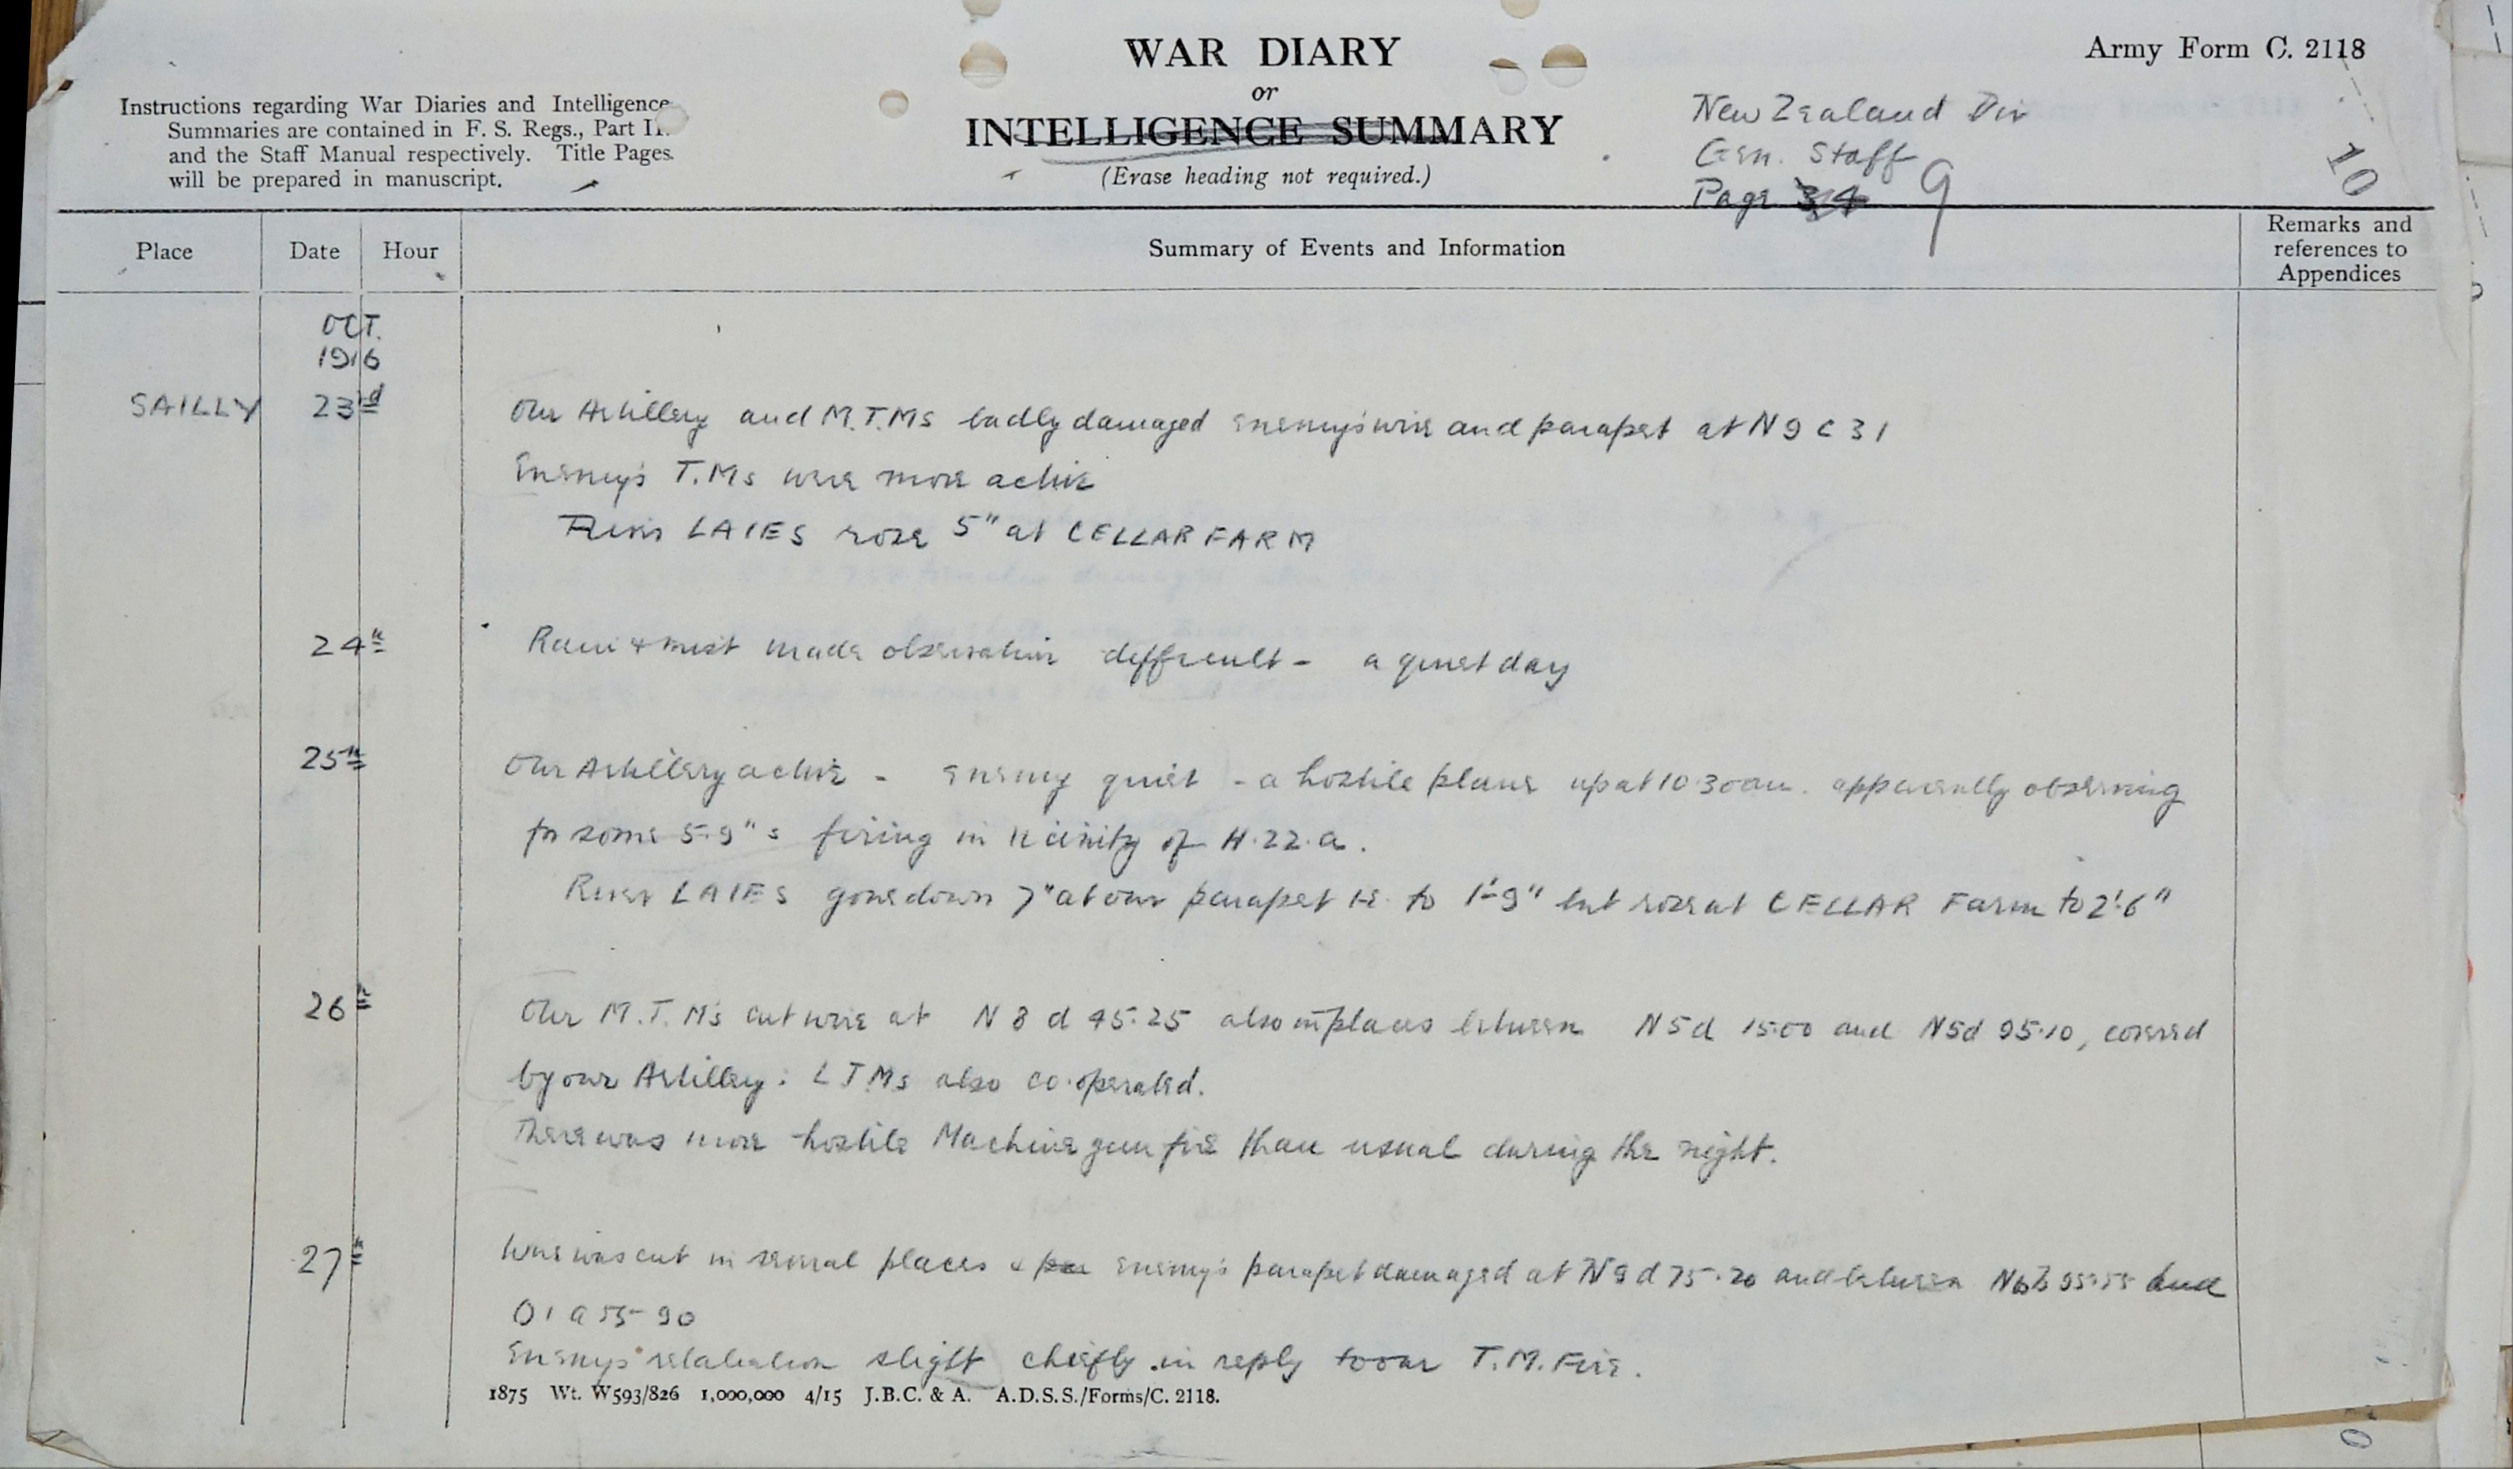 WAR DIARY
or
INTELLIGENCE SUMMARY
(Erase heading not required.)
Army Form C. 2118
Instructions regarding War Diaries and Intelligence
Summaries are contained in F. S. Regs., Part II.
and the Staff Manual respectively. Title Pages
will be prepared in manuscript.
New Zealand Div
Gen. Staff
Page 34 9
10
Place Date Hour Summary of Events and Information Remarks and references to Appendices
OCT.
1916
SAILLY 23rd Our Artillery and M.T.Ms badly damaged enemy's wire and parapet at N 9 c 3 1
Enemy's T.Ms were more active
River LAIES rose 5" at CELLAR FARM
24th Rain & mist made observation difficult - a quiet day
25th Our Artillery active - enemy quiet - a hostile plane up at 10.30 am. apparently observing
for some 5.9"s firing in vicinity of H.22.a.
River LAIES gone down 7" at our parapet i.e. to 1'-9" but rose at CELLAR Farm to 2'.6"
26th Our M.T.Ms cut wire at N 8 d 45.25 also in places between N5d 15.00 and N5d 95.10, covered
by our Artillery: L T.Ms also co-operated.
There was more hostile Machine gun fire than usual during the night.
27th Wire was cut in several places & enemy's parapet damaged at N 9 d 75.20 and between N6b 95.55 and
O1 a 55-90
Enemy's retaliation slight chiefly in reply to our T.M. Fire.
1875 Wt. W593/826 1,000,000 4/15 J.B.C. & A. A.D.S.S./Forms/C. 2118.